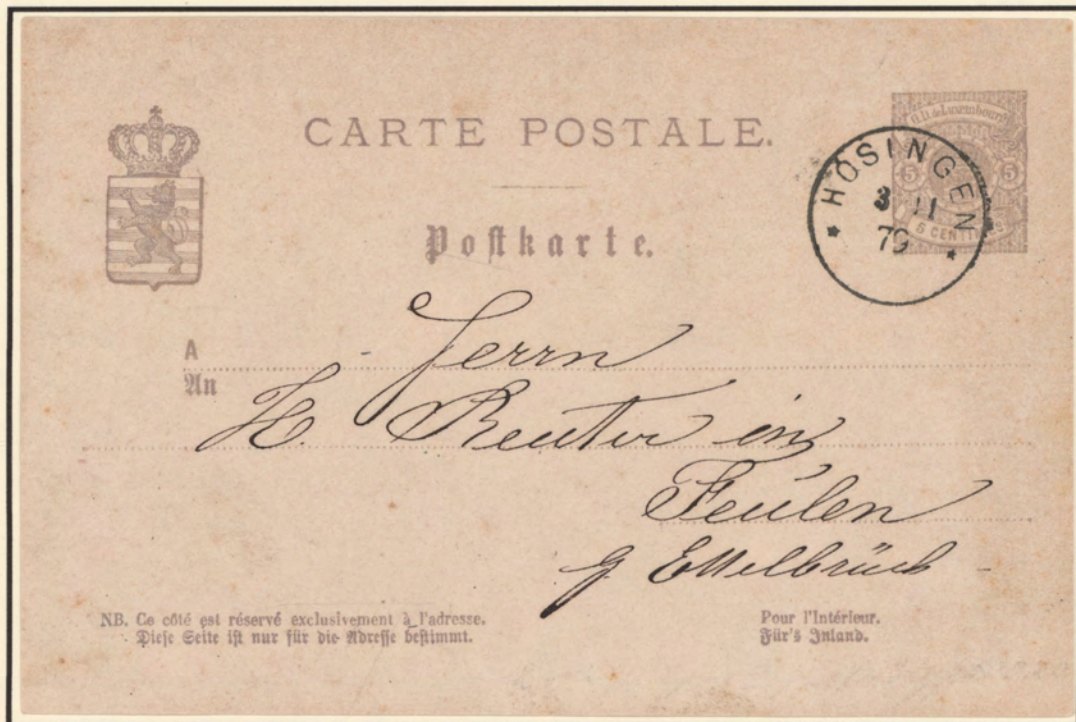 CARTE POSTALE.
Postkarte.
G.D. de Luxembourg
5 5
5 CENTIMES
HOSINGEN
3 11
79
A
An
Herrn
H. Reuter in
Feulen
g Ettelbrück
NB. Ce côté est réservé exclusivement à l'adresse.
Diese Seite ist nur für die Adresse bestimmt.
Pour l'Intérieur.
Für's Inland.